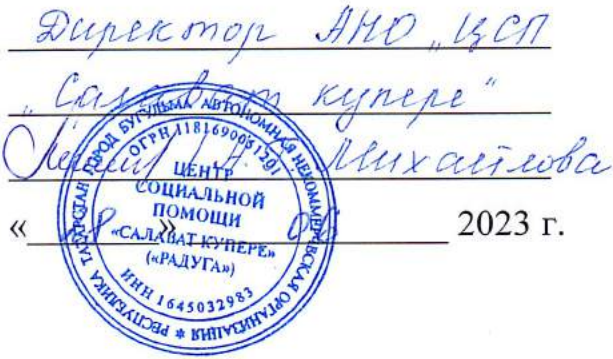 Директор АНО „ЦСП
„Салават купере“
Михайлова
« » 2023 г.
РЕСПУБЛИКА ТАТАРСТАН ГОРОД БУГУЛЬМА АВТОНОМНАЯ НЕКОММЕРЧЕСКАЯ ОРГАНИЗАЦИЯ *
ОГРН 1181690051201
ЦЕНТР
СОЦИАЛЬНОЙ
ПОМОЩИ
«САЛАВАТ КУПЕРЕ»
(«РАДУГА»)
ИНН 1645032983